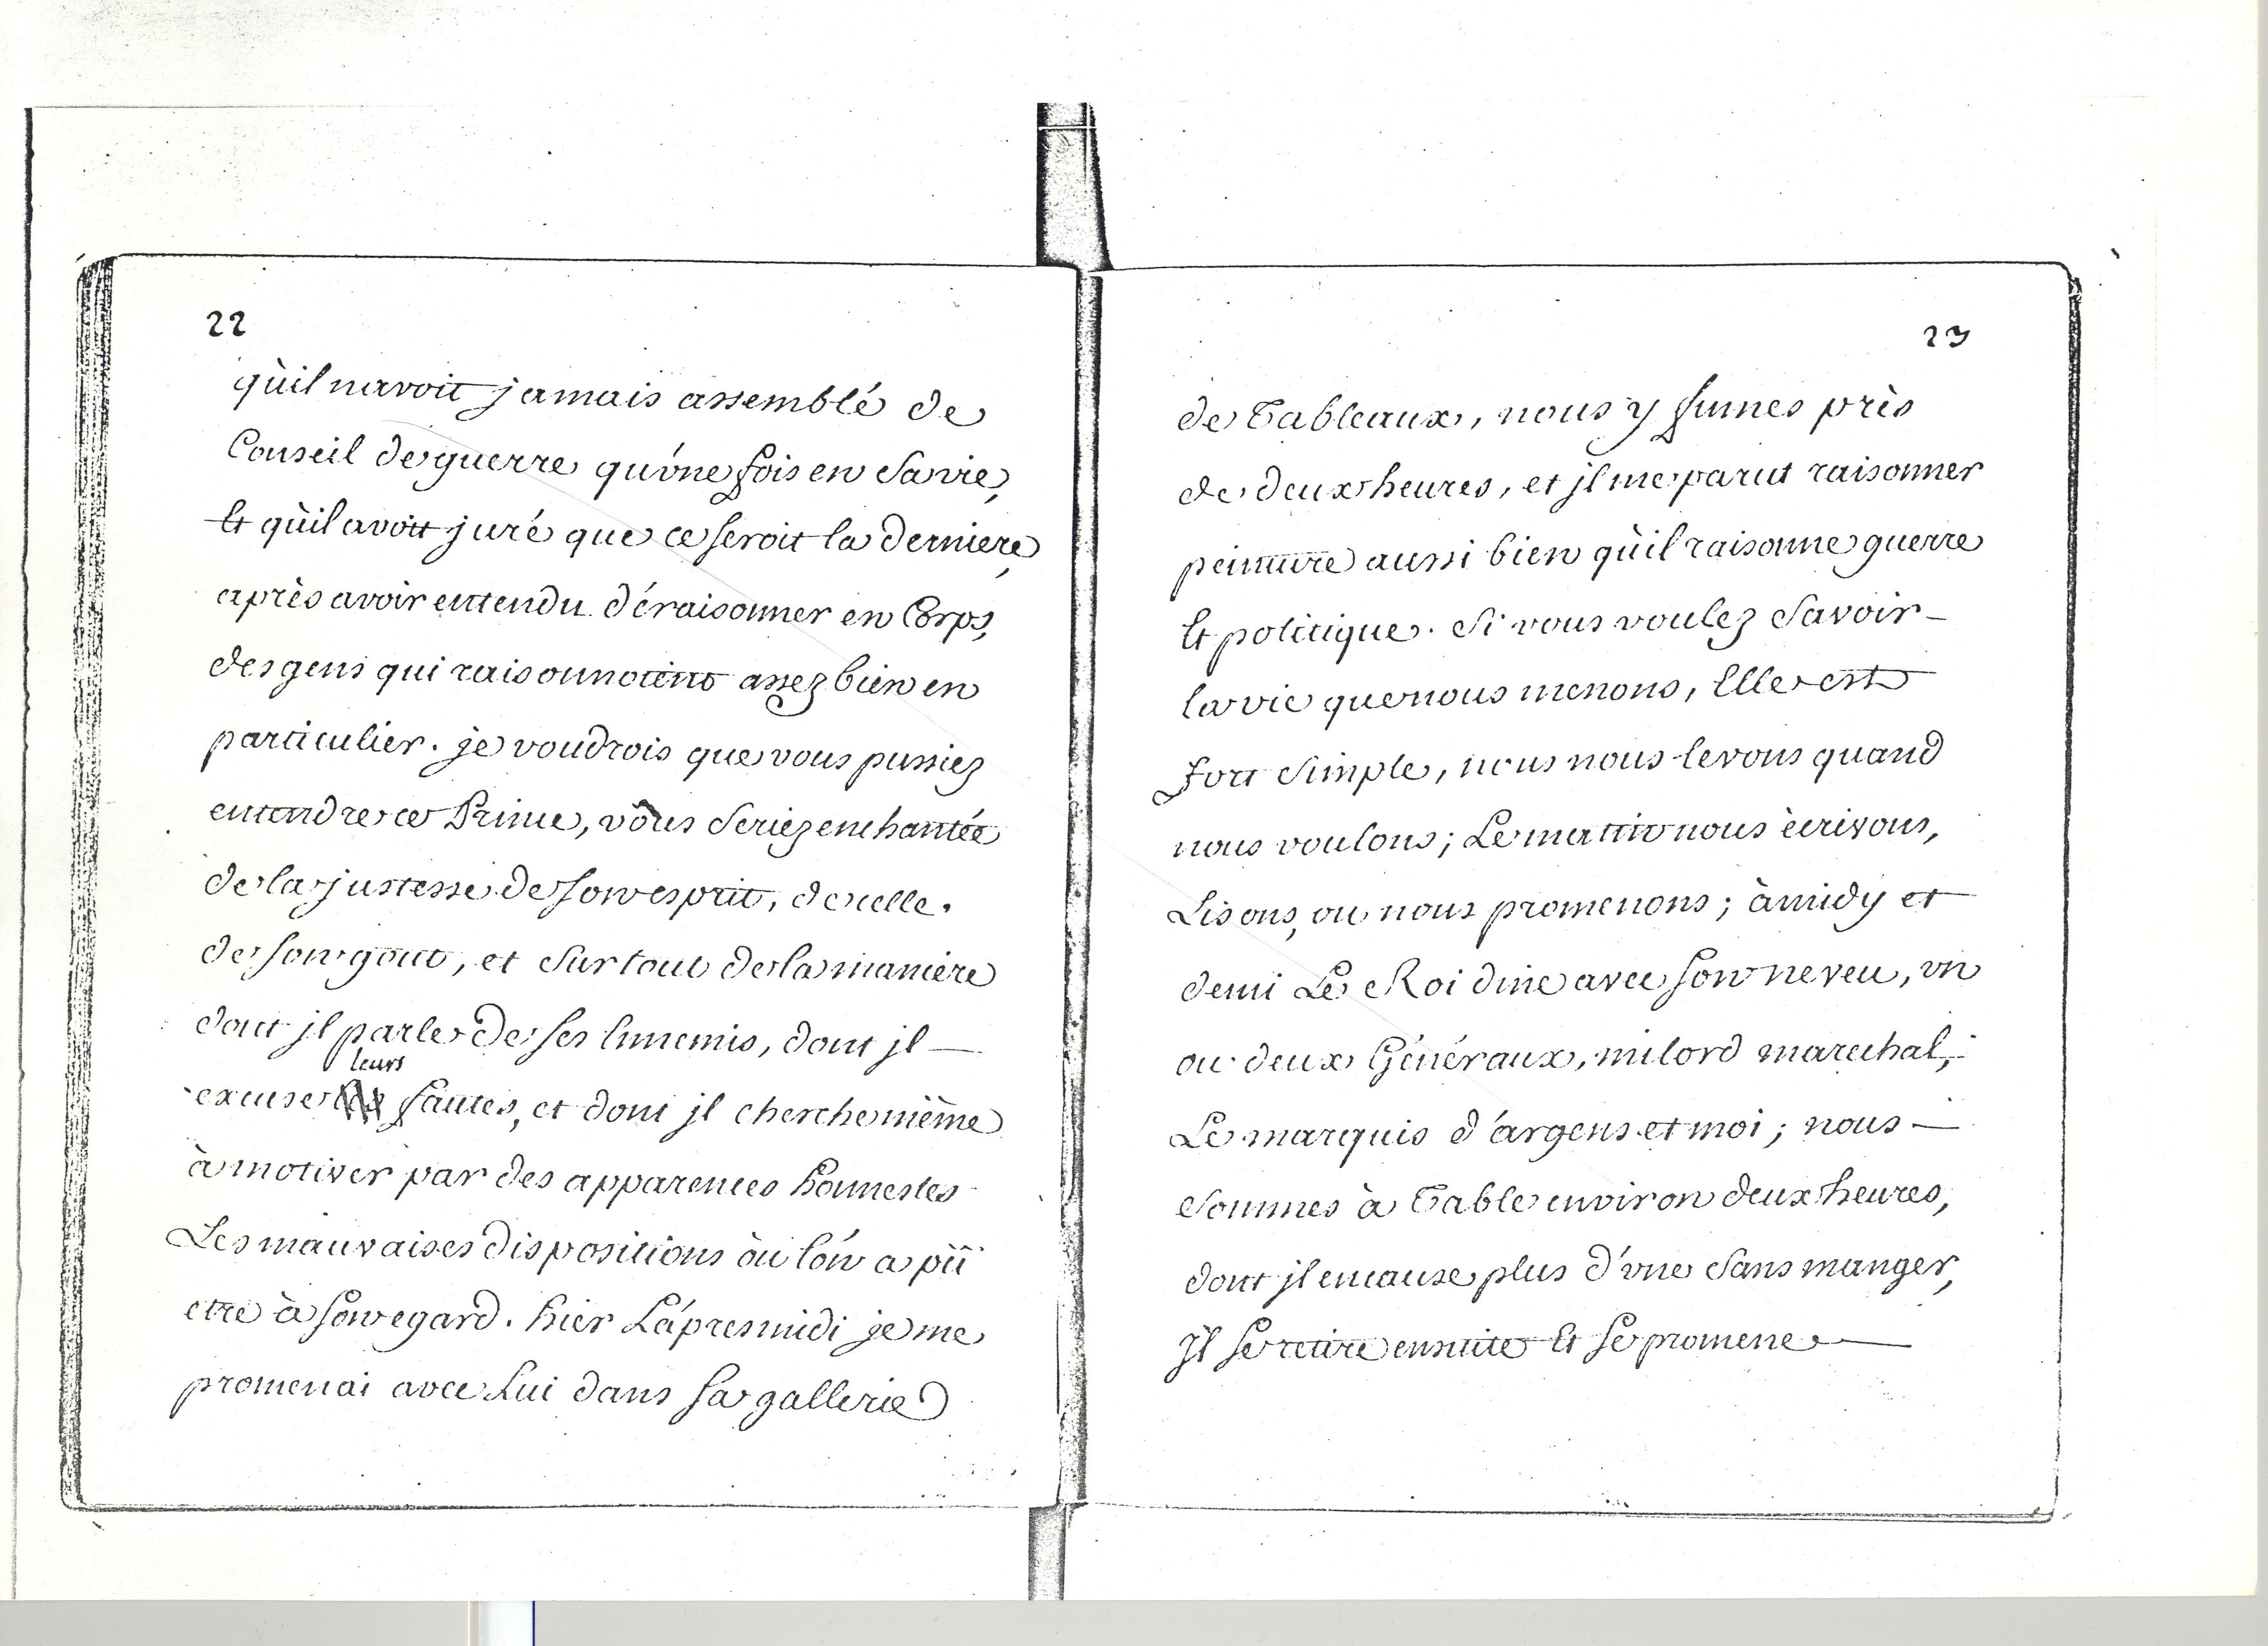 22
qu'il n'avoit jamais assemblé de
Conseil de guerre qu'vne fois en sa vie,
Et qu'il avoit juré que ce seroit la derniere,
après avoir entendu déraisonner en Corps,
des gens qui raisonnoient assez bien en
particulier. je voudrois que vous pussiez
entendre ce Prince, vous seriez enchantée
de la justesse de son esprit, de celle.
de son gout, et sur tout de la maniére
dont jl parle de ses Ennemis, dont jl —
leurs
excuse fautes, et dont jl cherche même
à motiver par des apparences honnestes
Les mauvaises dispositions òu l'on a pû
etre à son egard. hier L'apresmidi je me
promenai avec Lui dans sa gallerie
23
de Tableaux, nous y fumes près
de deux heures, et jl me parut raisonner
peinture aussi bien qu'il raisonne guerre
Et politique. Si vous voulez savoir —
la vie que nous menons, Elle est
fort simple, nous nous levons quand
nous voulons; Le mattin nous ècrivons,
Lisons, ou nous promenons; à midy et
demi Le Roi dine avec son neveu, vn
ou deux Généraux, milord marechal,
Le marquis d'argens et moi; nous —
sommes à Table environ deux heures,
dont jl en cause plus d'vne sans manger,
Jl se retire ensuite Et se promene —